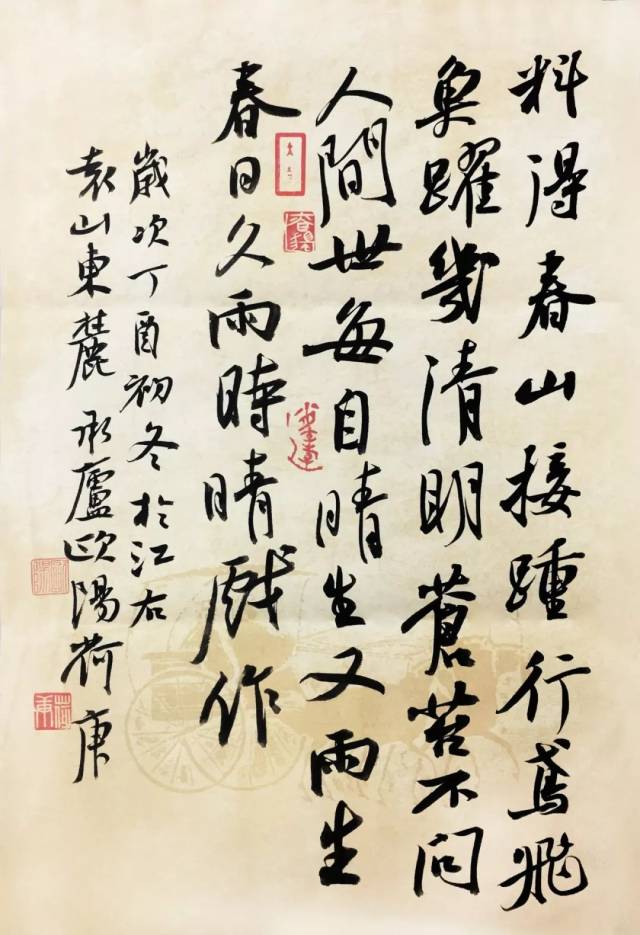 料得春山接踵行鳶飛
魚躍幾清明蒼苔不问
人間世每自晴生又雨生
春日久雨時晴戲作
歲次丁酉初冬於江右
袁山東麓承廬歐陽荷庚